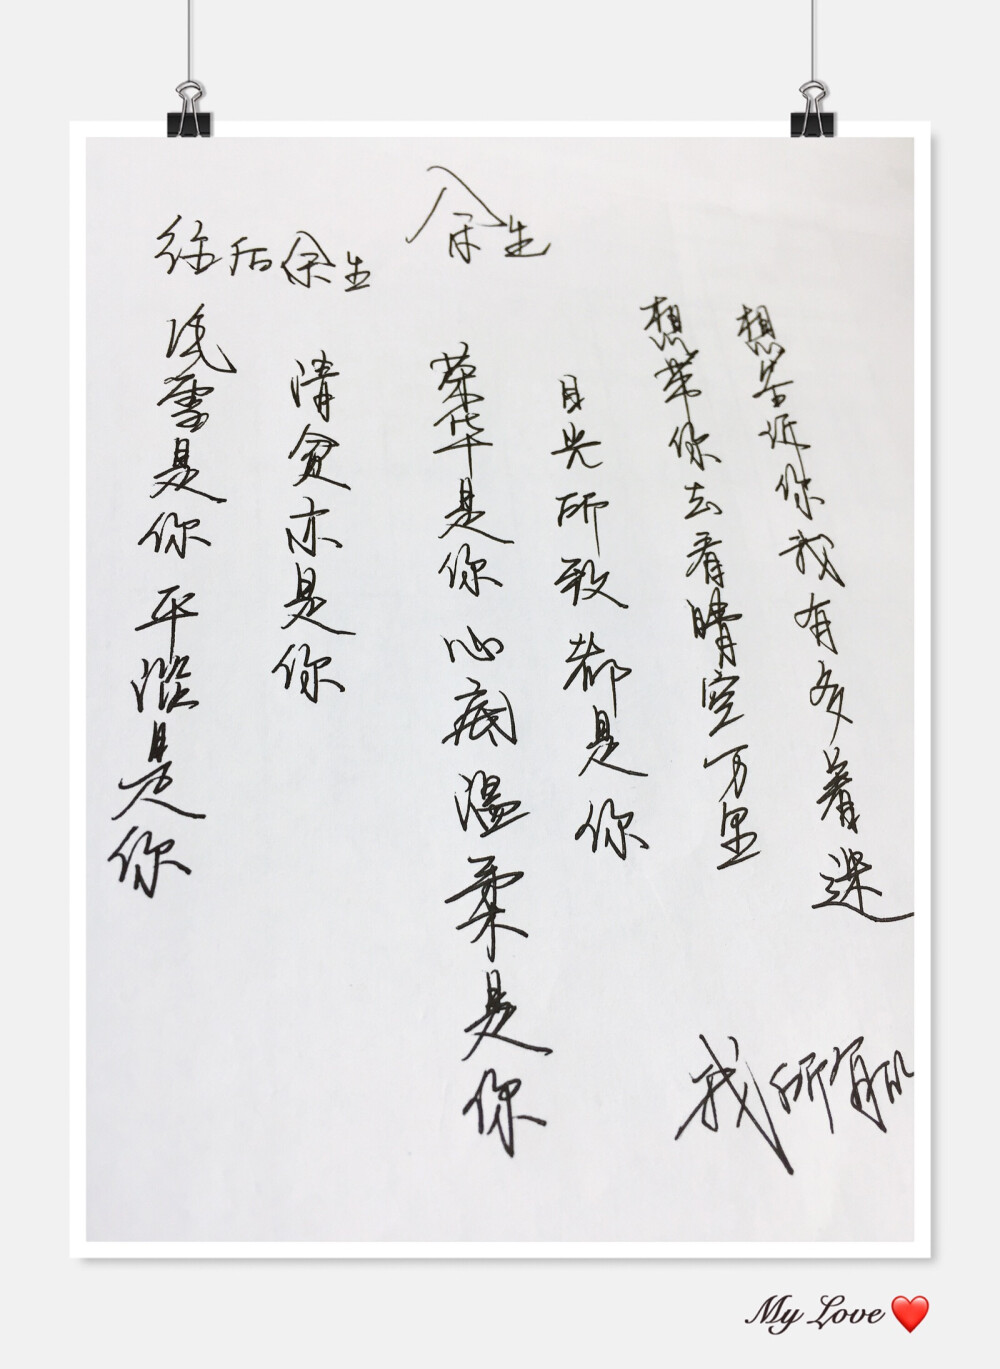 余生
往后余生
风雪是你 平淡是你
清贫亦是你
荣华是你 心底温柔是你
目光所致 都是你
想带你去看晴空万里
想告诉你我有多着迷
我所有
My Love ❤️